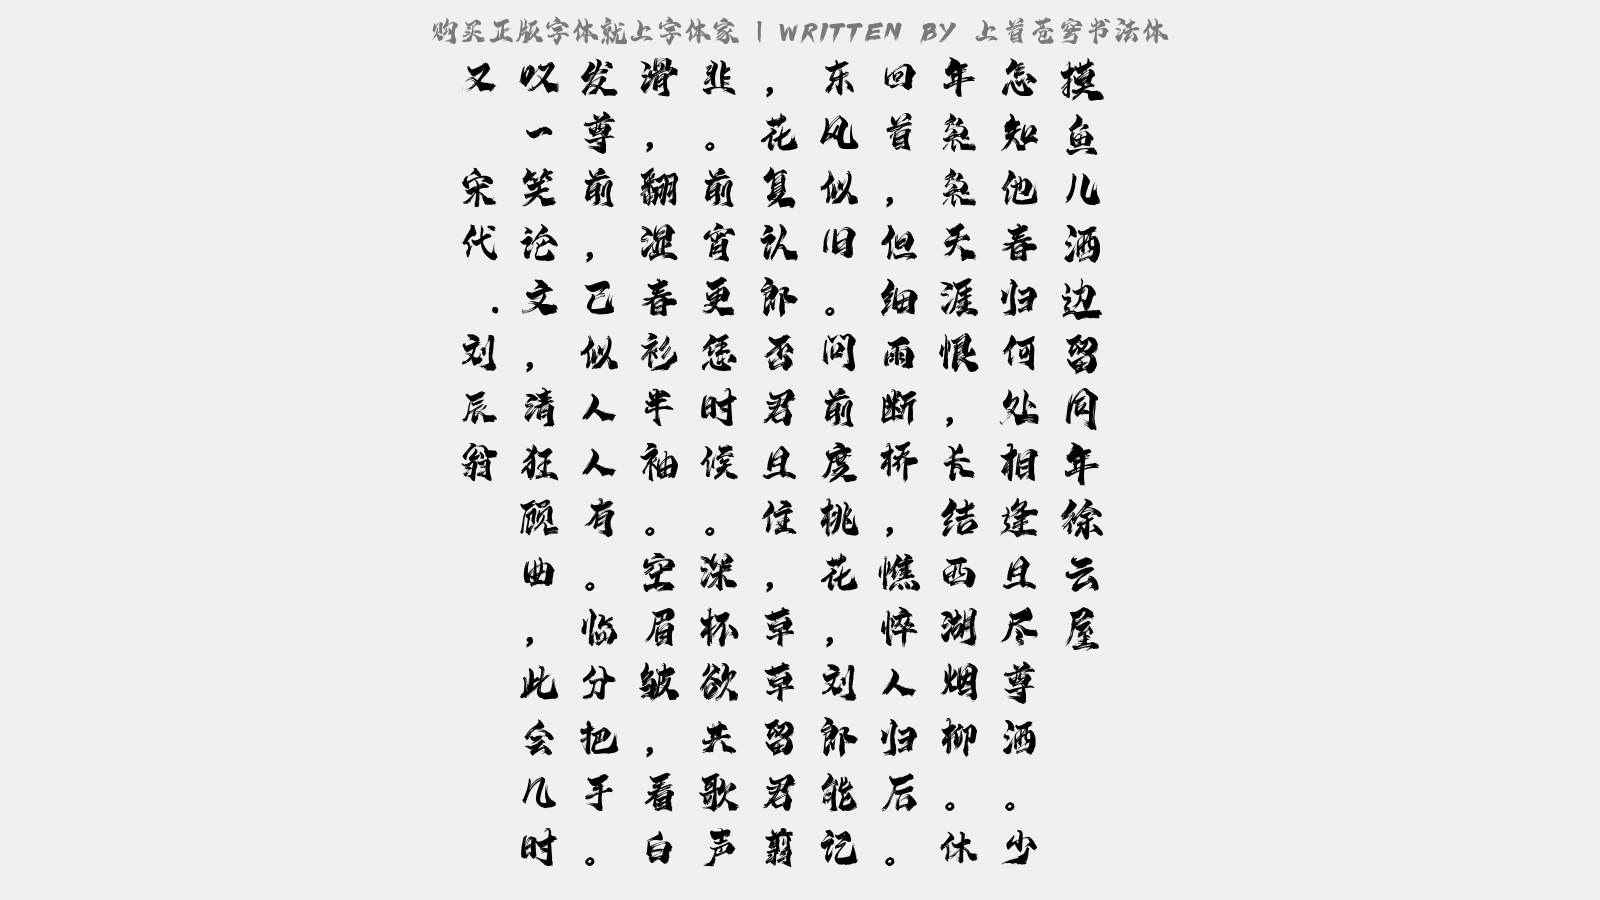 购买正版字体就上字体家 | WRITTEN BY 上首苍穹书法体
摸鱼儿酒边留同年徐云屋
怎知他春归何处相逢且尽尊酒。少
年袅袅天涯恨，长结西湖烟柳。休
回首，但细雨断桥，憔悴人归后。
东风似旧。问前度桃花，刘郎能记
，花复认郎否君且住，草草留君翦
韭。前宵更恁时候。深杯欲共歌声
滑，翻湿春衫半袖。空眉皱，看白
发尊前，已似人人有。临分把手。
叹一笑论文，清狂顾曲，此会几时
又 宋代.刘辰翁